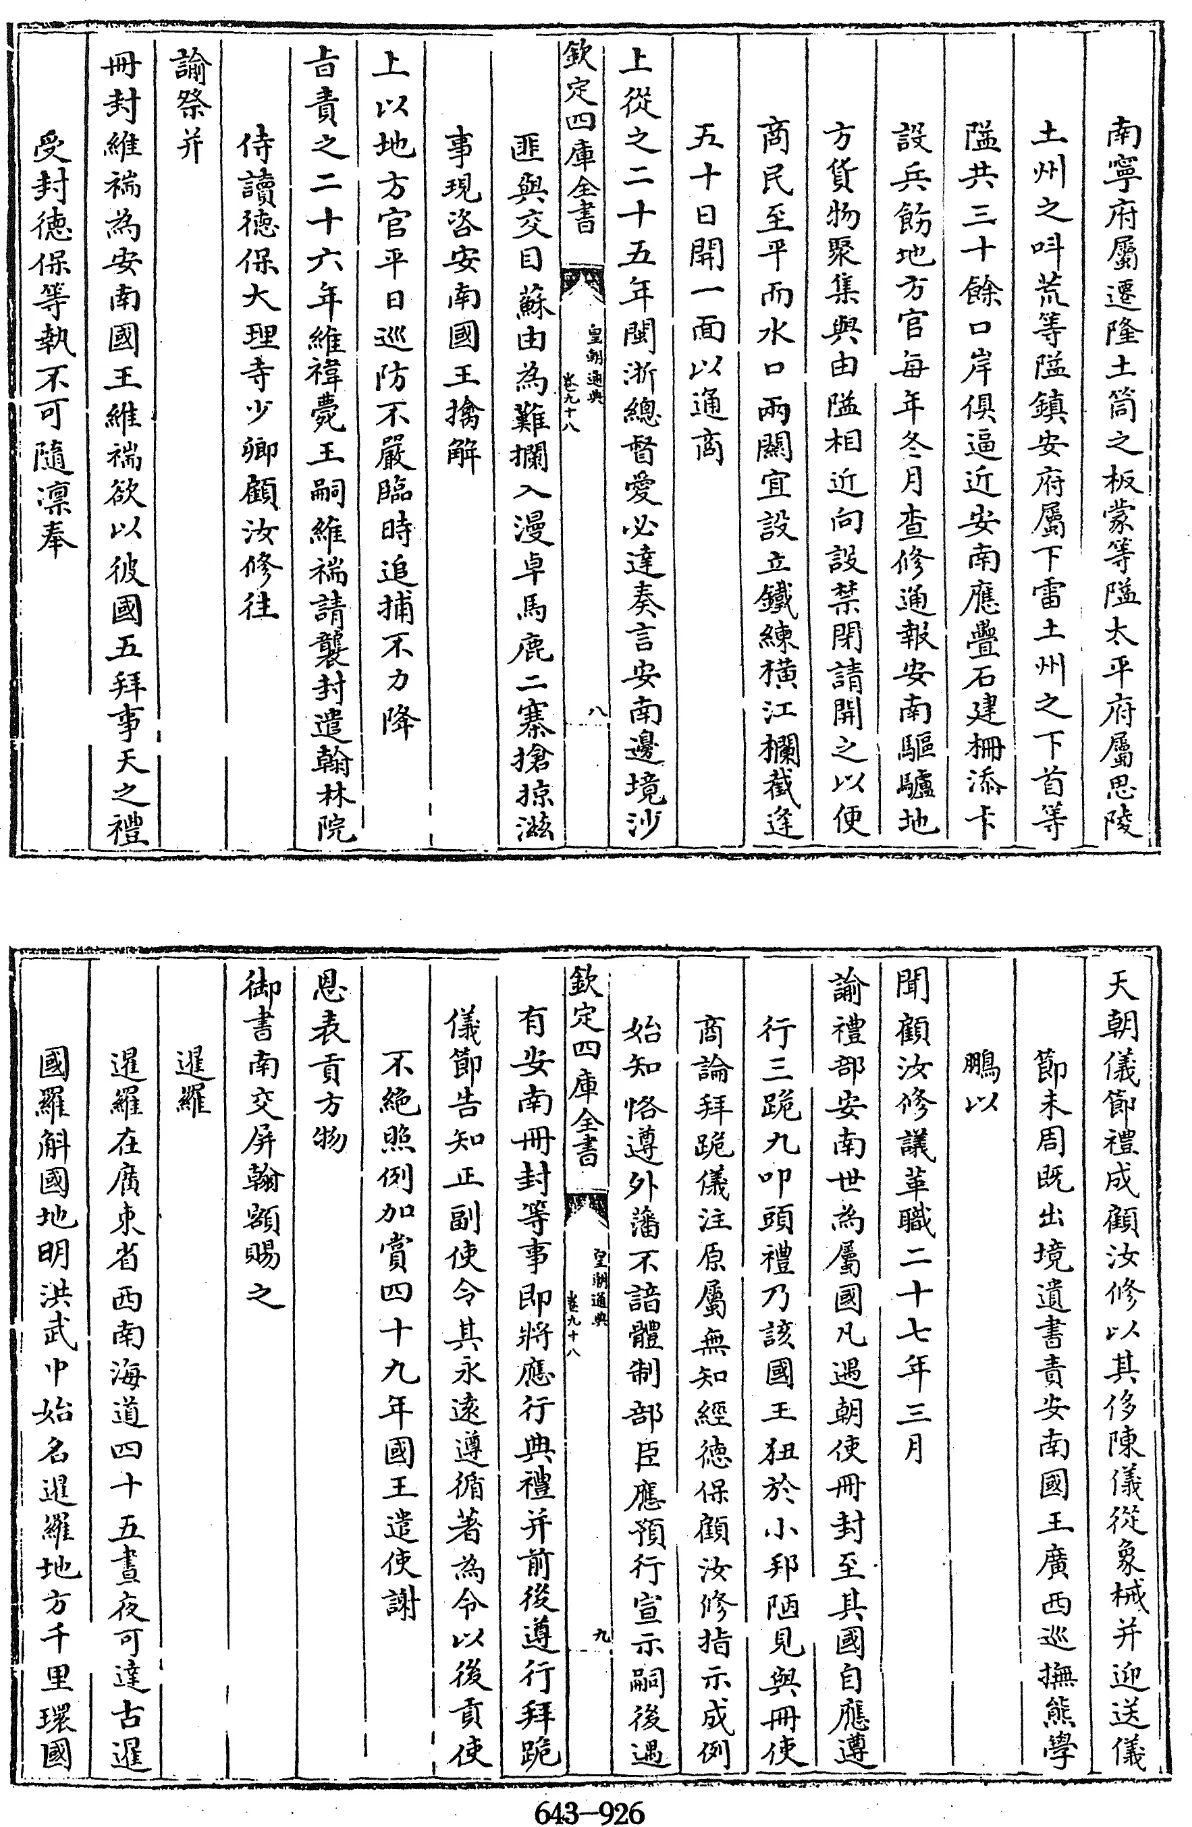 南寧府屬遷隆土筒之板蒙等隘太平府屬思陵
土州之呌荒等隘鎮安府屬下雷土州之下首等
隘共三十餘口岸俱逼近安南應疊石建柵添卡
設兵飭地方官每年冬月查修通報安南驅驢地
方貨物聚集與由隘相近向設禁閉請開之以便
商民至平而水口兩關宜設立鐵練橫江欄截逢
五十日開一面以通商
上從之二十五年閩浙總督愛必達奏言安南邊境沙
欽定四庫全書
皇朝通典
卷九十八
八
匪與交目蘇由為難攔入漫卓馬鹿二寨搶掠滋
事現咨安南國王擒解
上以地方官平日巡防不嚴臨時追捕不力降
旨責之二十六年維禕薨王嗣維褍請襲封遣翰林院
侍讀德保大理寺少卿顧汝修往
諭祭并
冊封維褍為安南國王維褍欲以彼國五拜事天之禮
受封德保等執不可隨凛奉
天朝儀節禮成顧汝修以其侈陳儀從象械并迎送儀
節未周既出境遺書責安南國王廣西巡撫熊學
鵬以
聞顧汝修議革職二十七年三月
諭禮部安南世為屬國凡遇朝使冊封至其國自應遵
行三跪九叩頭禮乃該國王狃於小邦陋見與冊使
商論拜跪儀注原屬無知經德保顧汝修指示成例
始知恪遵外藩不諳體制部臣應預行宣示嗣後遇
欽定四庫全書
皇朝通典
卷九十八
九
有安南冊封等事即將應行典禮并前後遵行拜跪
儀節告知正副使令其永遠遵循著為令以後貢使
不絶照例加賞四十九年國王遣使謝
恩表貢方物
御書南交屏翰額賜之
暹羅
暹羅在廣東省西南海道四十五晝夜可達古暹
國羅斛國地明洪武中始名暹羅地方千里環國
643-926